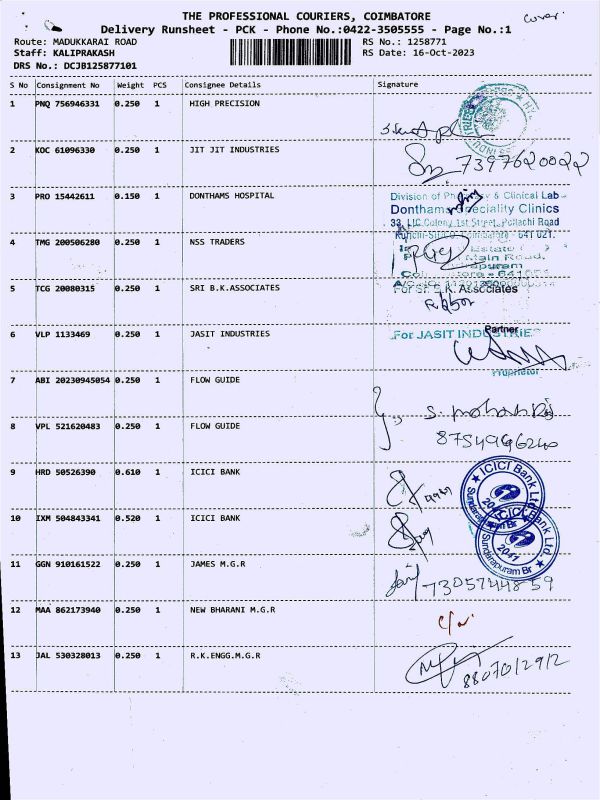 THE PROFESSIONAL COURIERS, COIMBATORE
Delivery Runsheet - PCK - Phone No.:0422-3505555 - Page No.:1
Route: MADUKKARAI ROAD RS No.: 1258771
Staff: KALIPRAKASH RS Date: 16-Oct-2023
DRS No.: DCJB125877101
S No Consignment No Weight PCS Consignee Details Signature
1 PNQ 756946331 0.250 1 HIGH PRECISION
2 KOC 61096330 0.250 1 JIT JIT INDUSTRIES 7397620022
3 PRO 15442611 0.150 1 DONTHAMS HOSPITAL
Division of & Clinical Lab
Donthams Speciality Clinics
33, LIC Colony 1st Street, Pollachi Road
4 TMG 200506280 0.250 1 NSS TRADERS
Main Road,
5 TCG 20080315 0.250 1 SRI B.K.ASSOCIATES
For Sri B.K. Associates
Partner
6 VLP 1133469 0.250 1 JASIT INDUSTRIES For JASIT INDUSTRIE
Proprietor
7 ABI 20230945054 0.250 1 FLOW GUIDE
8 VPL 521620483 0.250 1 FLOW GUIDE
9 HRD 50526390 0.610 1 ICICI BANK
ICICI Bank Ltd.
10 IXM 504843341 0.520 1 ICICI BANK
ICICI Bank Ltd.
Sundarapuram Br
2041
11 GGN 910161522 0.250 1 JAMES M.G.R 7305744859
12 MAA 862173940 0.250 1 NEW BHARANI M.G.R
13 JAL 530328013 0.250 1 R.K.ENGG.M.G.R
8807012912